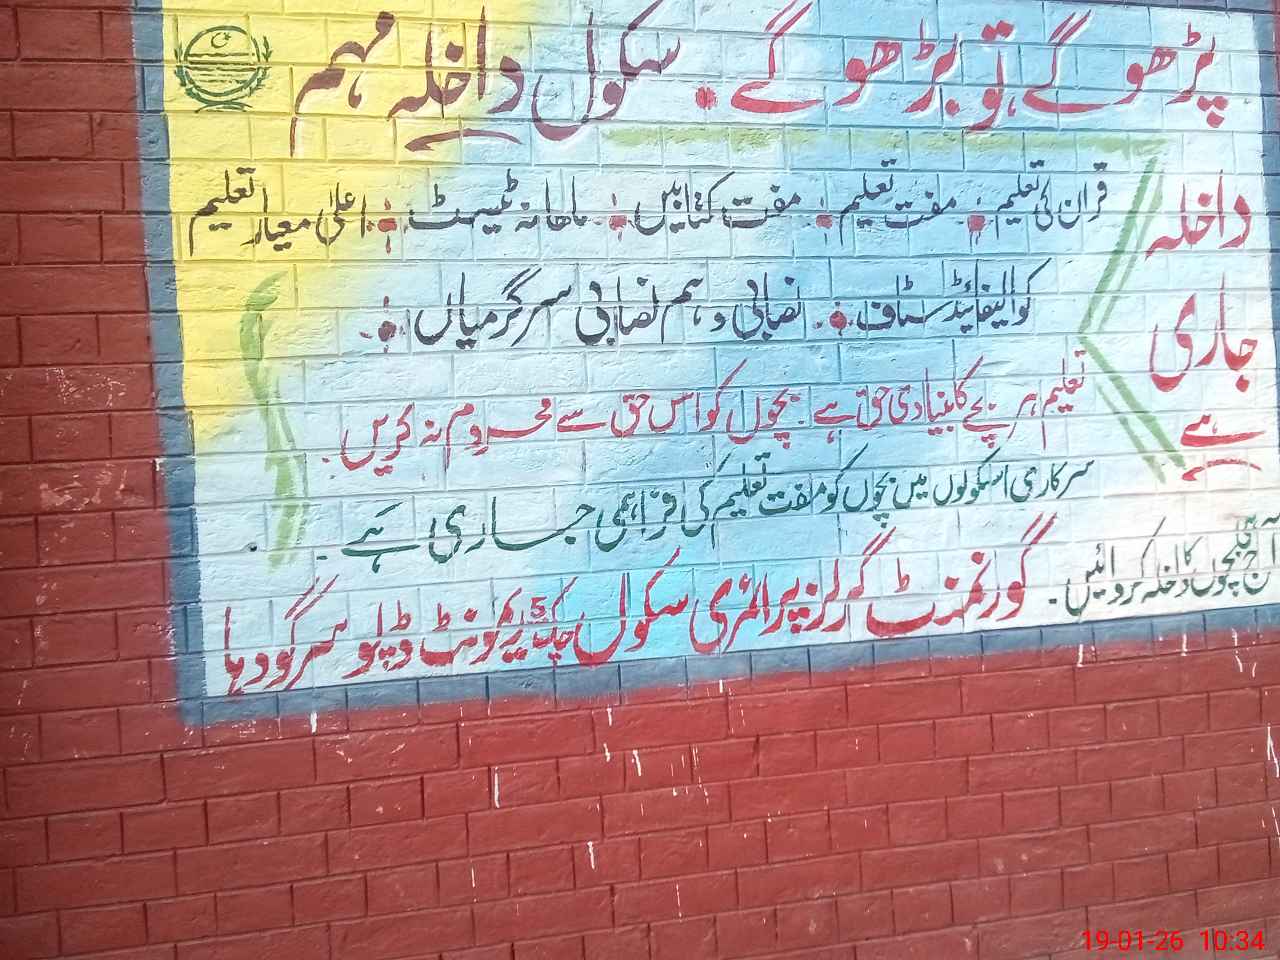 پڑھو گے تو بڑھو گے . سکول داخلہ مہم
داخلہ
جاری
ہے
قرآن کی تعلیم . مفت تعلیم . مفت کتابیں . ماھانہ ٹیسٹ . اعلیٰ معیار تعلیم
کوالیفائیڈ سٹاف . نصابی و ہم نصابی سرگرمیاں .
تعلیم ہر بچے کا بنیادی حق ہے . بچوں کو اس حق سے محروم نہ کریں .
سرکاری اسکولوں میں بچوں کو مفت تعلیم کی فراہمی جاری ہے .
آج ہی بچوں کا داخلہ کروائیں .
گورنمنٹ گرلز پرائمری سکول چک 5 ریمونٹ ڈپو سرگودہا
19-01-26 10:34